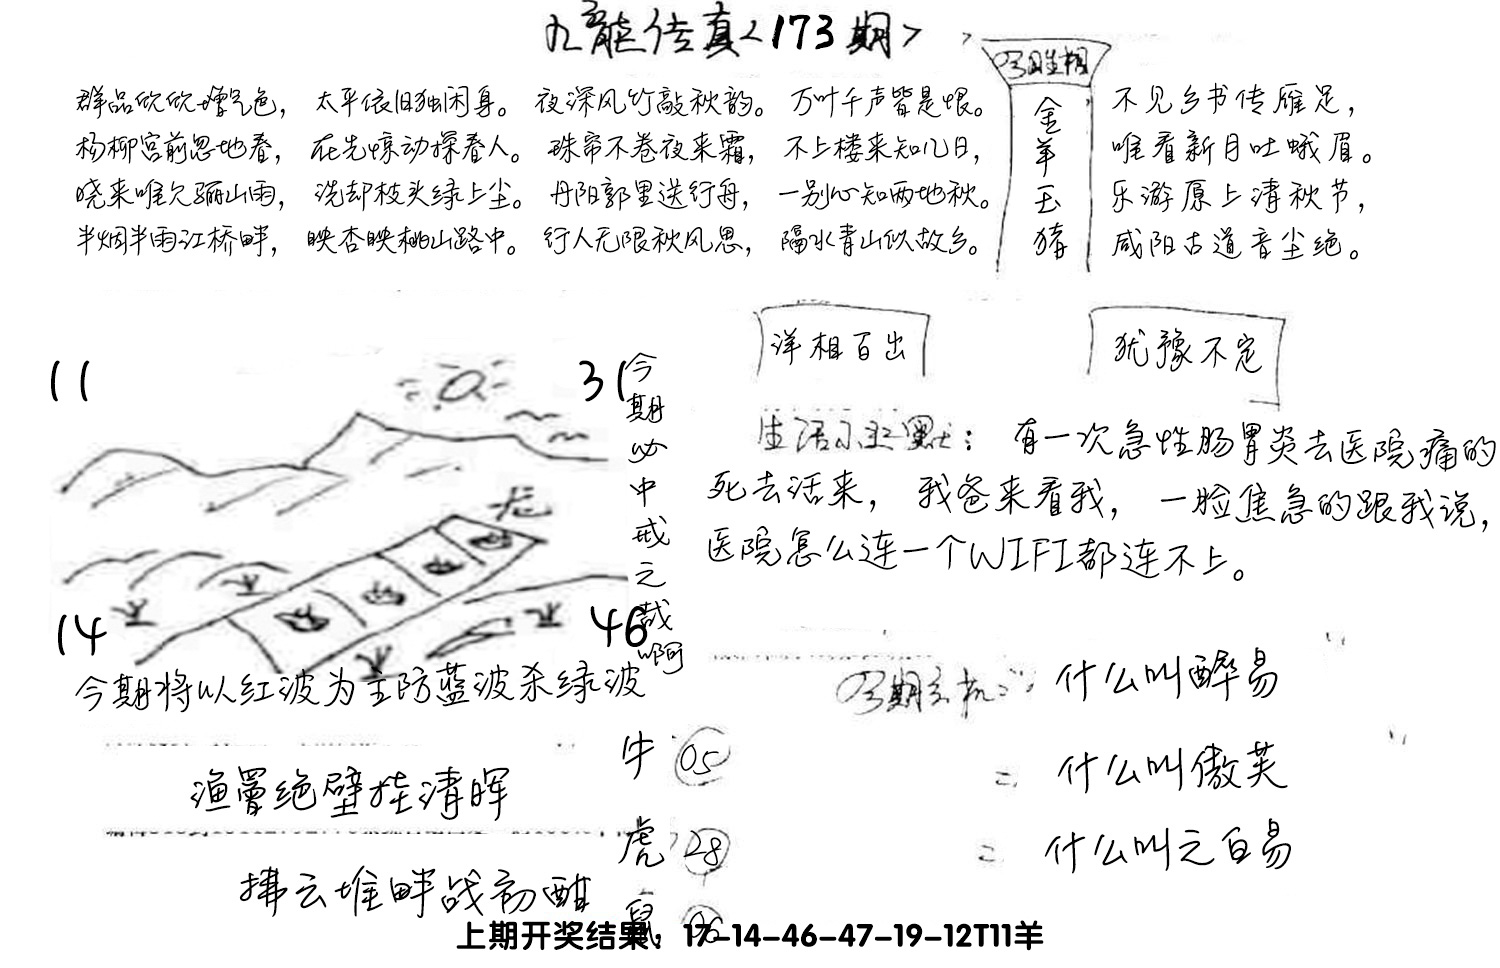 九龙传真<173期>
群品欣欣增气色，太平依旧独闲身。夜深风竹敲秋韵。万叶千声皆是恨。
杨柳宫前忽地春，在先惊动探春人。珠帘不卷夜来霜，不上楼来知几日，
晓来唯欠骊山雨，洗却枝头绿上尘。丹阳郭里送行舟，一别心知两地秋。
半烟半雨江桥畔，映杏映桃山路中。行人无限秋风思，隔水青山似故乡。
金羊玉猪
不见乡书传雁足，
唯看新月吐蛾眉。
乐游原上清秋节，
咸阳古道音尘绝。
洋相百出
犹豫不定
11
31
14
46
龙
今期必中戒之哉啊
今期将以红波为主防蓝波杀绿波
生活小幽默：有一次急性肠胃炎去医院痛的
死去活来，我爸来看我，一脸焦急的跟我说，
医院怎么连一个WIFI都连不上。
今期玄机：什么叫醉易
二 什么叫傲芙
二 什么叫元白易
渔罾绝壁挂清晖
拂云堆畔战初酣
牛 05
虎 28
鼠 06
上期开奖结果：17-14-46-47-19-12T11羊